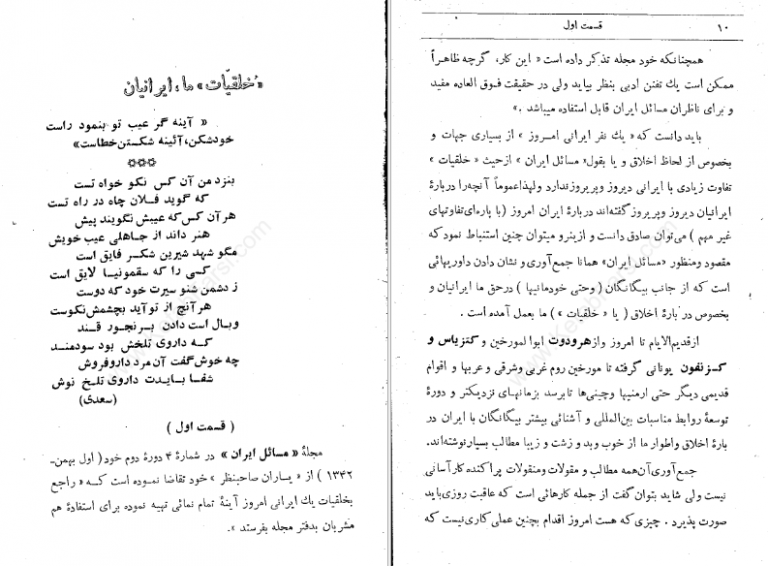 «خلقیّات» ما، ایرانیان
« آینه گر عیب تو بنمود راست
خودشکن، آئینه شکستن خطاست»
***
بنزد من آن کس نکو خواه تست
که گوید فلان چاه در راه تست
هر آن کس که عیبش نگویند پیش
هنر داند از جاهلی عیب خویش
مگو شهد شیرین شکر فایق است
کسی را که سقمونیا لایق است
ز دشمن شنو سیرت خود که دوست
هر آنچ از تو آید بچشمش نکوست
وبال است دادن برنجور قند
که داروی تلخش بود سودمند
چه خوش گفت آن مرد دارو فروش
شفا بایدت داروی تلخ نوش
(سعدی)
( قسمت اول )
مجلهٔ « مسائل ایران » در شمارهٔ ۴ دورهٔ دوم خود ( اول بهمن-
۱۳۴۲ ) از « یاران صاحبنظر » خود تقاضا نموده است که « راجع
بخلقیات یك ایرانی امروز آینهٔ تمام نمائی تهیه نموده برای استفادهٔ هم
مشربان بدفتر مجله بفرستد ».
۱۰ قسمت اول
همچنانکه خود مجله تذکر داده است « این کار، گرچه ظاهراً
ممکن است یك تفنن ادبی بنظر بیاید ولی در حقیقت فوق العاده مفید
و برای ناظران مسائل ایران قابل استفاده میباشد .»
باید دانست که « یك نفر ایرانی امروز » از بسیاری جهات و
بخصوص از لحاظ اخلاق و یا بقول « مسائل ایران » از حیث « خلقیات »
تفاوت زیادی با ایرانی دیروز و پریروز ندارد ولهذا عموماً آنچه را دربارهٔ
ایرانیان دیروز و پریروز گفته‌اند دربارهٔ ایران امروز (با پاره‌ای تفاوتهای
غیر مهم ) می‌توان صادق دانست و ازینرو میتوان چنین استنباط نمود که
مقصود ومنظور «مسائل ایران» همانا جمع‌آوری و نشان دادن داوریهائی
است که از جانب بیگانگان ( وحتی خودمانیها ) درحق ما ایرانیان و
بخصوص در بارهٔ اخلاق ( یا « خلقیات » ) ما بعمل آمده است .
از قدیم‌الایام تا امروز و از هرودوت ابوالمورخین و کتزیاس و
کسزنفون یونانی گرفته تا مورخین روم غربی وشرقی و عربها و اقوام
قدیمی دیگر حتی ارمنیها وچینی‌ها تابرسد بزمانهای نزدیکتر و دورهٔ
توسعهٔ روابط مناسبات بین‌المللی و آشنائی بیشتر بیگانگان با ایران در
بارهٔ اخلاق واطوار ما از خوب وبد و زشت و زیبا مطالب بسیار نوشته‌اند.
جمع‌آوری آن همه مطالب و مقولات ومنقولات پراکنده کار آسانی
نیست ولی شاید بتوان گفت از جمله کارهائی است که عاقبت روزی باید
صورت پذیرد . چیزی که هست امروز اقدام بچنین عملی کاری نیست که